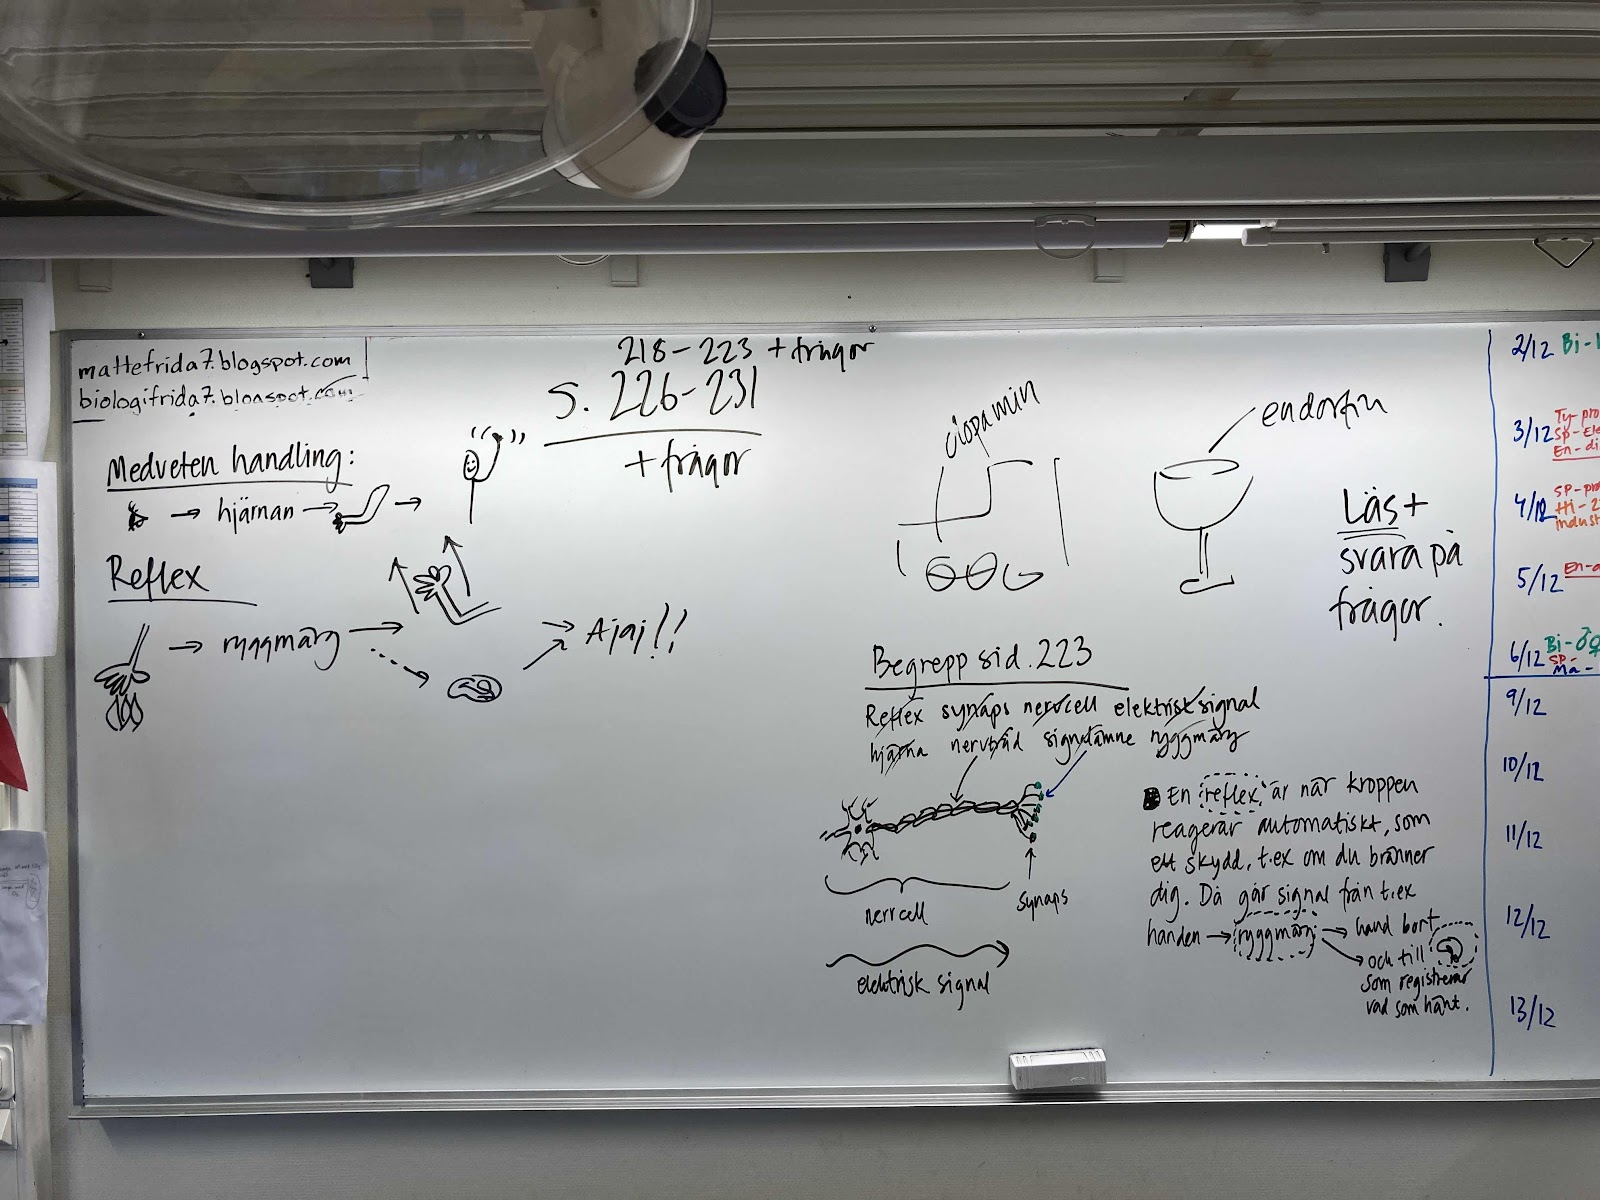 mattefrida7.blogspot.com
biologifrida7.blogspot.com
218-223 + frågor
s. 226-231
+ frågor
Medveten handling:
→ hjärnan → →
Reflex
→ ryggmärg → → Ajaj!!
dopamin
endorfin
Läs +
svara på
frågor.
Begrepp sid. 223
Reflex synaps nervcell elektrisk signal
hjärna nervtråd signalämne ryggmärg
nervcell
synaps
elektrisk signal
En reflex är när kroppen
reagerar automatiskt, som
ett skydd, t.ex om du bränner
dig. Då går signal från t.ex
handen → ryggmärg → hand bort
→ och till
som registrerar
vad som hänt.
2/12 Bi-
3/12 Ty-pro
Sp-Ele
En-di
4/12 SP-pro
Hi-2
indust
5/12 En-
6/12 Bi-♂♀
SP-
Ma-
9/12
10/12
11/12
12/12
13/12